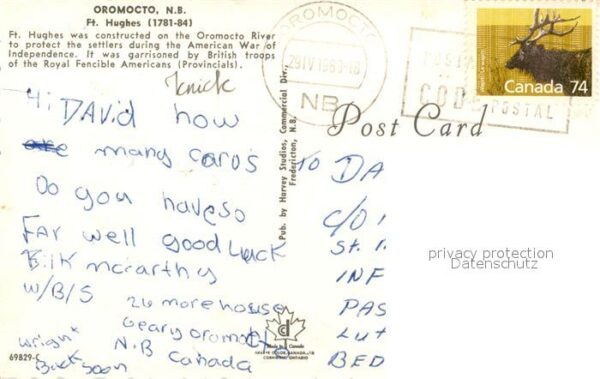 OROMOCTO, N.B.
Ft. Hughes (1781-84)
Ft. Hughes was constructed on the Oromocto River
to protect the settlers during the American War of
Independence. It was garrisoned by British troops
of the Royal Fencible Americans (Provincials).
Hi DAVid how
many cards
Do you have so
FAr well good Luck
Bilk mcarthy
w/B/S 26 morehouse
Geary oromocto
N.B Canada
wright
Back soon
69829-C
Pub. by Harvey Studios, Commercial Div.,
Fredericton, N.B.
OROMOCTO
NB
CODE POSTAL
Canada 74
Post Card
TO DA
C/O
St.
INF
PAS
Lut
BED
privacy protection
Datenschutz